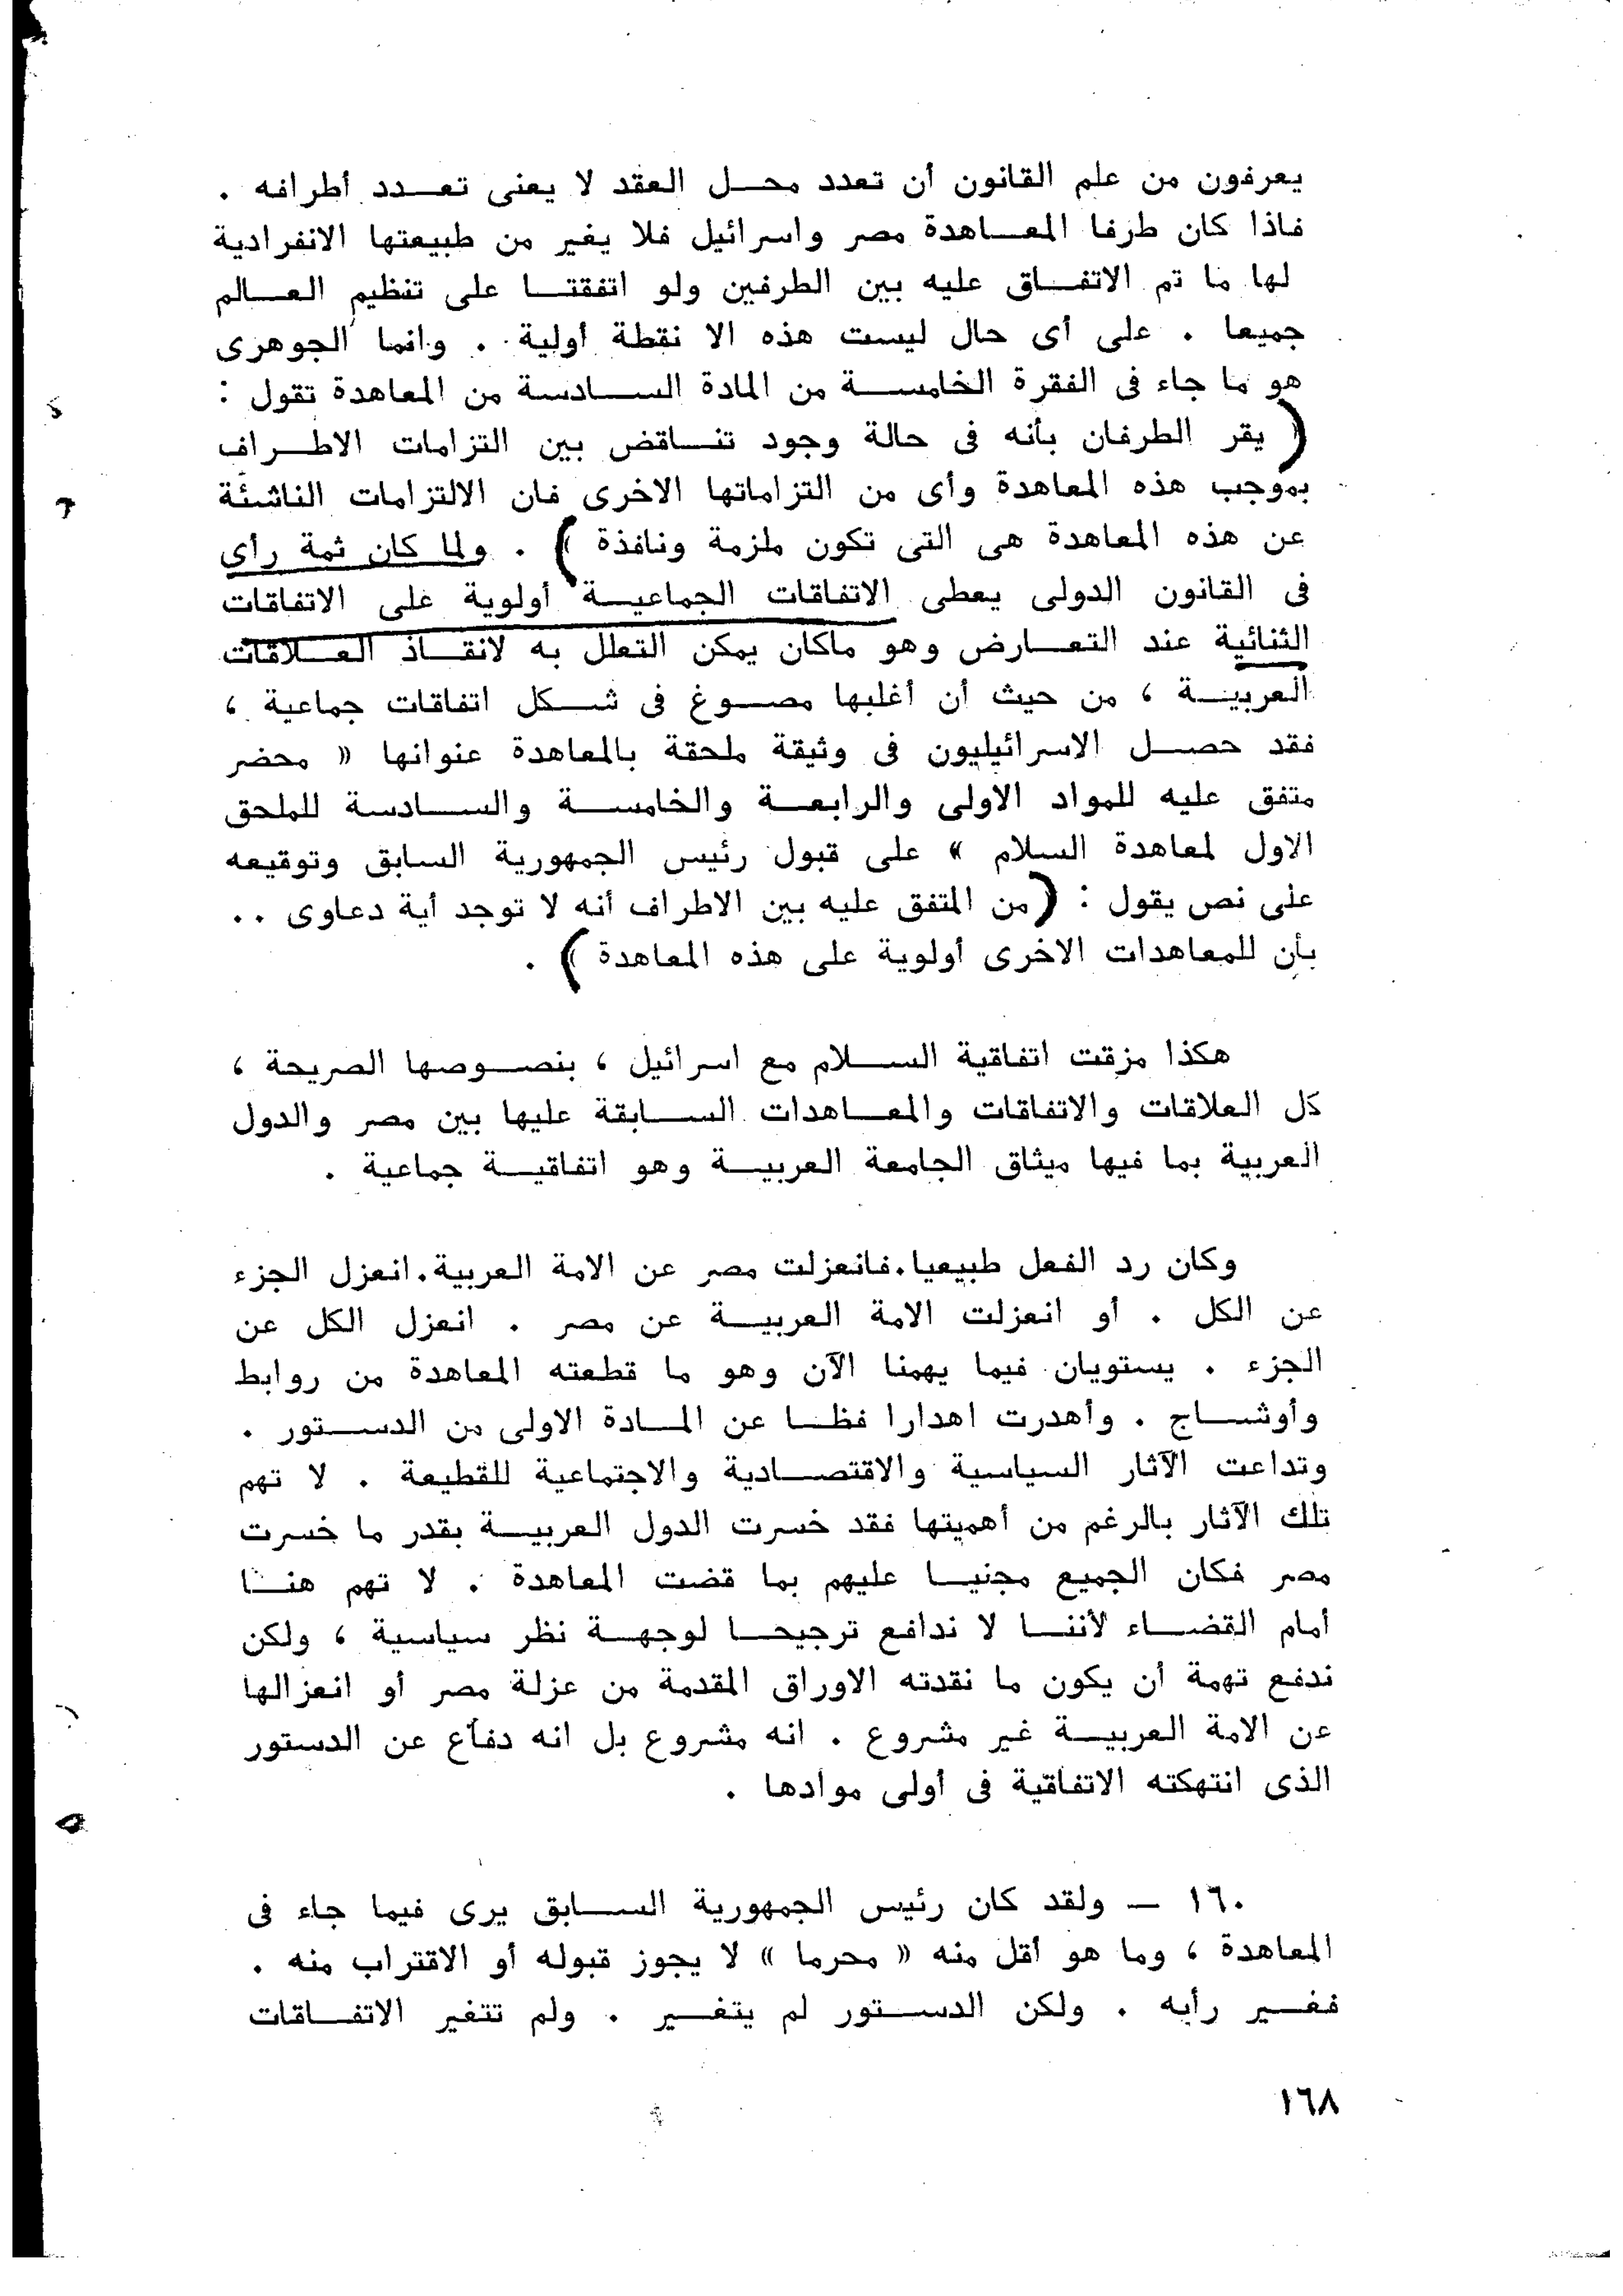 يعرفون من علم القانون أن تعدد محل العقد لا يعنى تعدد أطرافه .
فاذا كان طرفا المعاهدة مصر واسرائيل فلا يغير من طبيعتها الانفرادية
لها ما تم الاتفاق عليه بين الطرفين ولو اتفقتا على تنظيم العالم
جميعا . على أى حال ليست هذه الا نقطة أولية . وانما الجوهرى
هو ما جاء فى الفقرة الخامسة من المادة السادسة من المعاهدة تقول :
( يقر الطرفان بأنه فى حالة وجود تناقض بين التزامات الاطراف
بموجب هذه المعاهدة وأى من التزاماتها الاخرى فان الالتزامات الناشئة
عن هذه المعاهدة هى التى تكون ملزمة ونافذة ) . ولما كان ثمة رأى
فى القانون الدولى يعطى الاتفاقات الجماعية أولوية على الاتفاقات
الثنائية عند التعارض وهو ماكان يمكن التعلل به لانقاذ العلاقات
العربية ، من حيث أن أغلبها مصوغ فى شكل اتفاقات جماعية ،
فقد حصل الاسرائيليون فى وثيقة ملحقة بالمعاهدة عنوانها « محضر
متفق عليه للمواد الاولى والرابعة والخامسة والسادسة للملحق
الاول لمعاهدة السلام » على قبول رئيس الجمهورية السابق وتوقيعه
على نص يقول : ( من المتفق عليه بين الاطراف أنه لا توجد أية دعاوى ..
بأن للمعاهدات الاخرى أولوية على هذه المعاهدة ) .
هكذا مزقت اتفاقية السلام مع اسرائيل ، بنصوصها الصريحة ،
كل العلاقات والاتفاقات والمعاهدات السابقة عليها بين مصر والدول
العربية بما فيها ميثاق الجامعة العربية وهو اتفاقية جماعية .
وكان رد الفعل طبيعيا . فانعزلت مصر عن الامة العربية . انعزل الجزء
عن الكل . أو انعزلت الامة العربية عن مصر . انعزل الكل عن
الجزء . يستويان فيما يهمنا الآن وهو ما قطعته المعاهدة من روابط
وأوشاج . وأهدرت اهدارا فظا عن المادة الاولى من الدستور .
وتداعت الآثار السياسية والاقتصادية والاجتماعية للقطيعة . لا تهم
تلك الآثار بالرغم من أهميتها فقد خسرت الدول العربية بقدر ما خسرت
مصر فكان الجميع مجنيا عليهم بما قضت المعاهدة . لا تهم هنا
أمام القضاء لأننا لا ندافع ترجيحا لوجهة نظر سياسية ، ولكن
ندفع تهمة أن يكون ما نقدته الاوراق المقدمة من عزلة مصر أو انعزالها
عن الامة العربية غير مشروع . انه مشروع بل انه دفاع عن الدستور
الذى انتهكته الاتفاقية فى أولى موادها .
١٦٠ — ولقد كان رئيس الجمهورية السابق يرى فيما جاء فى
المعاهدة ، وما هو أقل منه « محرما » لا يجوز قبوله أو الاقتراب منه .
فغير رأيه . ولكن الدستور لم يتغير . ولم تتغير الاتفاقات
١٦٨